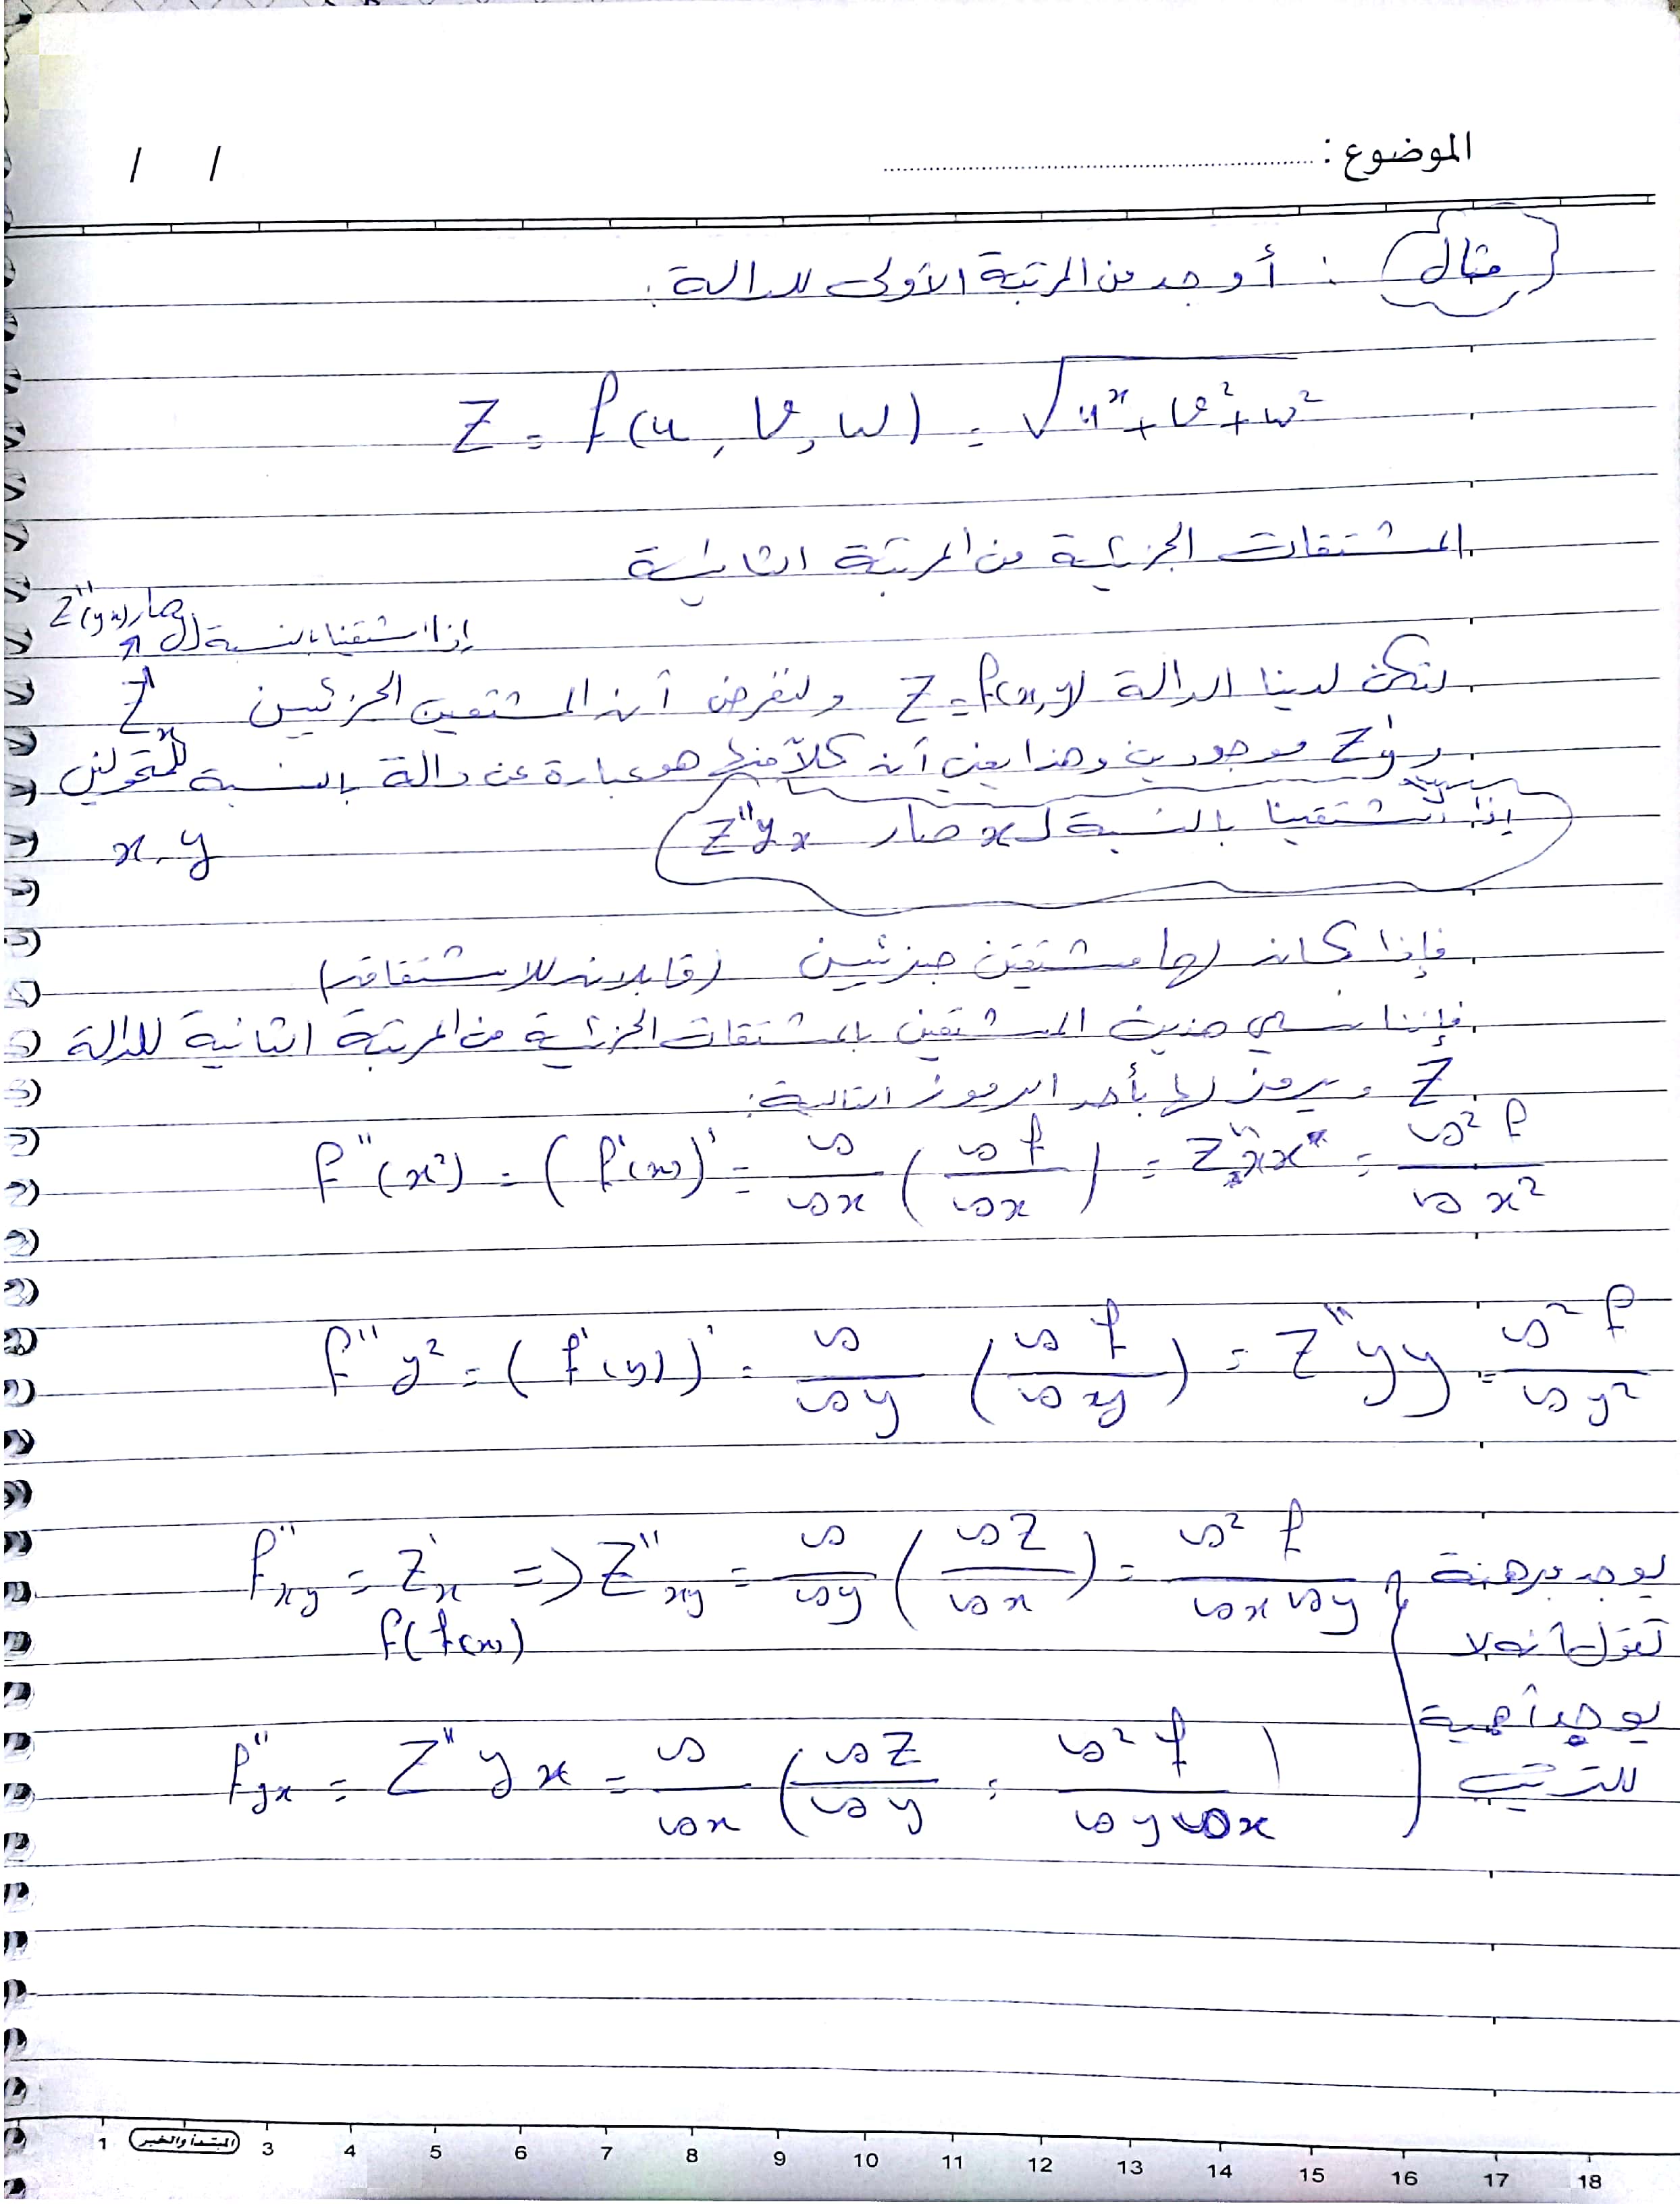 الموضوع :
/ /
مثال : أوجد من المرتبة الأولى للدالة :
Z = f(u, v, w) = √(u^x + v² + w²)
المشتقات الجزئية من المرتبة الثانية
إذا اشتقينا بالنسبة ل صار Z''(yx)
لتكن لدينا الدالة Z = f(x,y) ولنفرض أن المشتقين الجزئيين Z'x
و Z'y موجودين وهذا يعني أن كلاً منها هو عبارة عن دالة بالنسبة للمتحولين
x, y
إذا اشتقينا بالنسبة ل x صار Z''yx
فإذا كان لها مشتقين جزئيين (قابلان للاشتقاق)
فإننا نسمي هذين المشتقين بالمشتقات الجزئية من المرتبة الثانية للدالة
Z ويرمز لها بأحد الرموز التالية :
f''(x²) = (f'(x))' = ∂/∂x (∂f/∂x) = Z''xx = ∂²f/∂x²
f''y² = (f'(y))' = ∂/∂y (∂f/∂xy) = Z''yy = ∂²f/∂y²
f''xy = Z'x => Z''xy = ∂/∂y (∂Z/∂x) = ∂²f/∂x∂y
f(f(x)
f''yx = Z''yx = ∂/∂x (∂Z/∂y = ∂²f/∂y∂x )
يوجد مبرهنة
تقول أنه لا
يوجد أهمية
للترتيب
1 المبتدأ والخبر 3 4 5 6 7 8 9 10 11 12 13 14 15 16 17 18